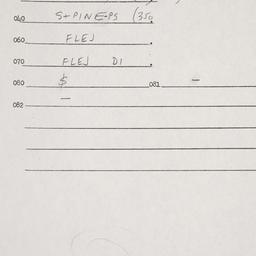 040 S+PINEPS (350
060 FLEJ
070 FLEJ DI
080 $ 081 –
082 –